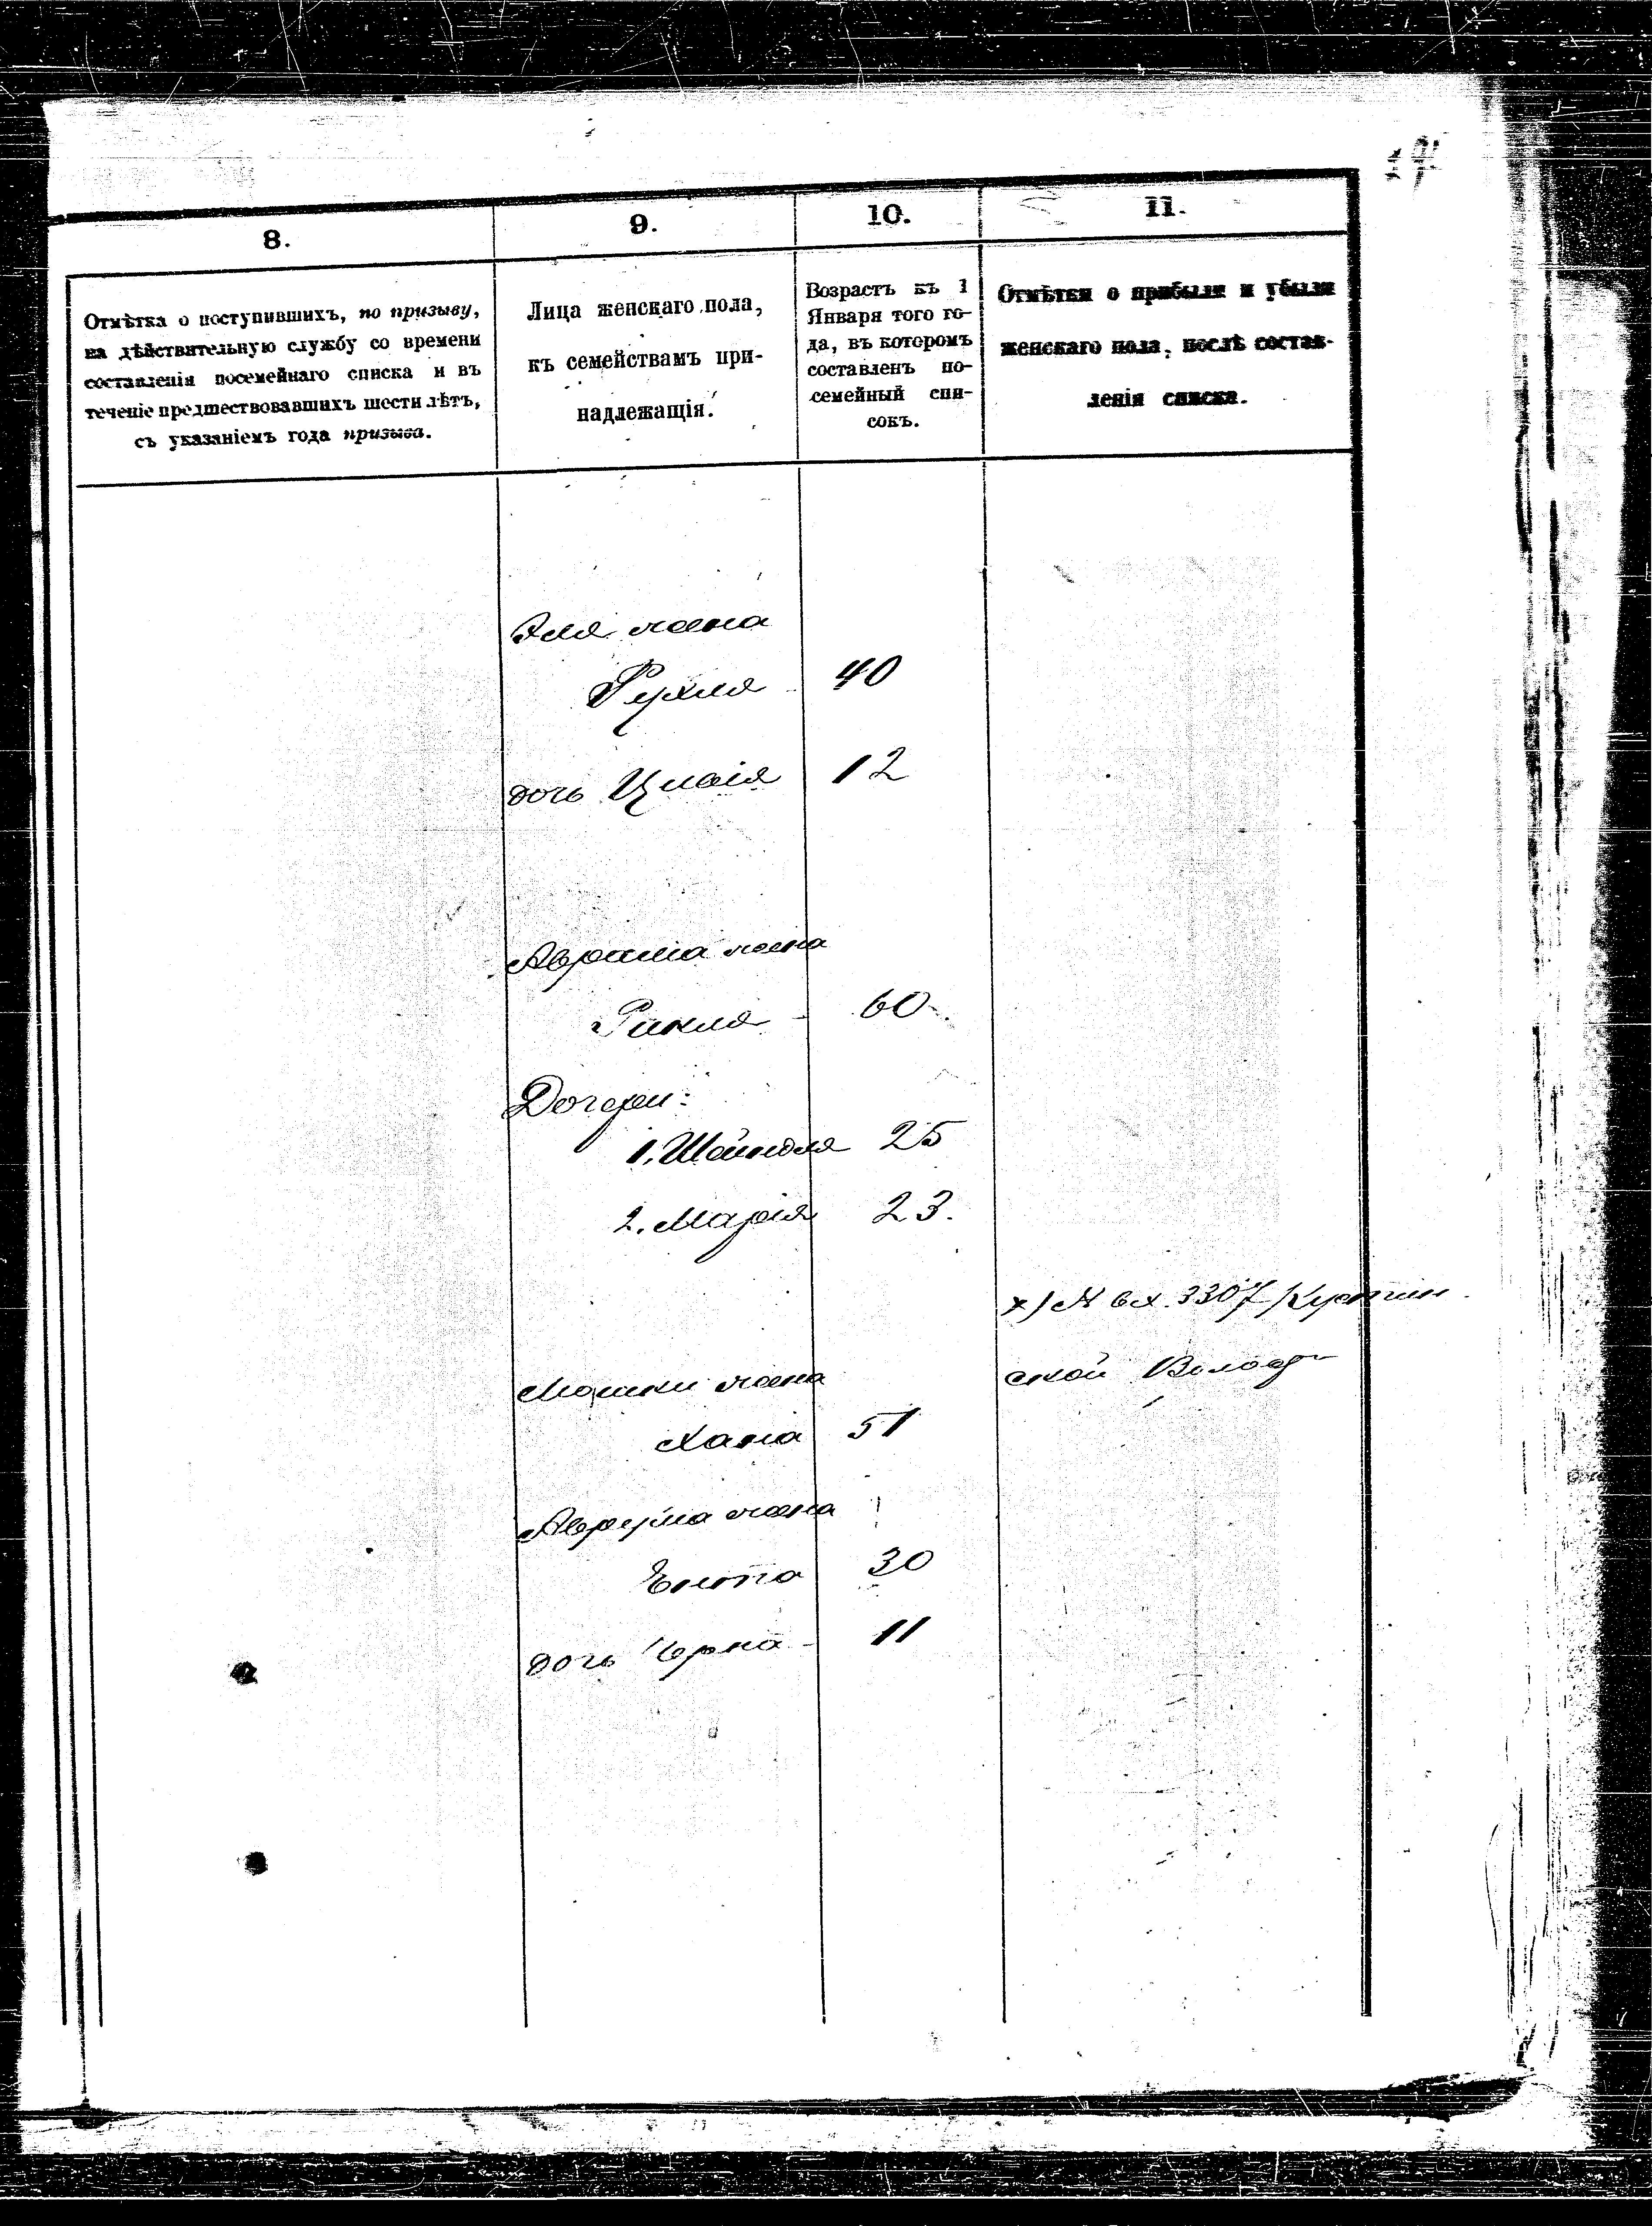 8.
9.
10.
11.
Отмѣтка о поступившихъ, по призыву,
на дѣйствительную службу со времени
составленія посемейнаго списка и въ
теченіе предшествовавшихъ шести лѣтъ,
съ указаніемъ года призыва.
Лица женскаго пола,
къ семействамъ при-
надлежащія.
Возрастъ къ 1
Января того го-
да, въ которомъ
составленъ по-
семейный спи-
сокъ.
Отмѣтки о прибыли и убыли
женскаго пола, послѣ состав-
ленія списка.
жена
Рухля 40
дочь Цивія 12
Абрама жена
60
Дочери:
1. Шейндля 25
2. Марія 23.
х) № вх. 3307
ской
Мошки жена
Хана 51
жена
Ента 30
дочь Черна 11